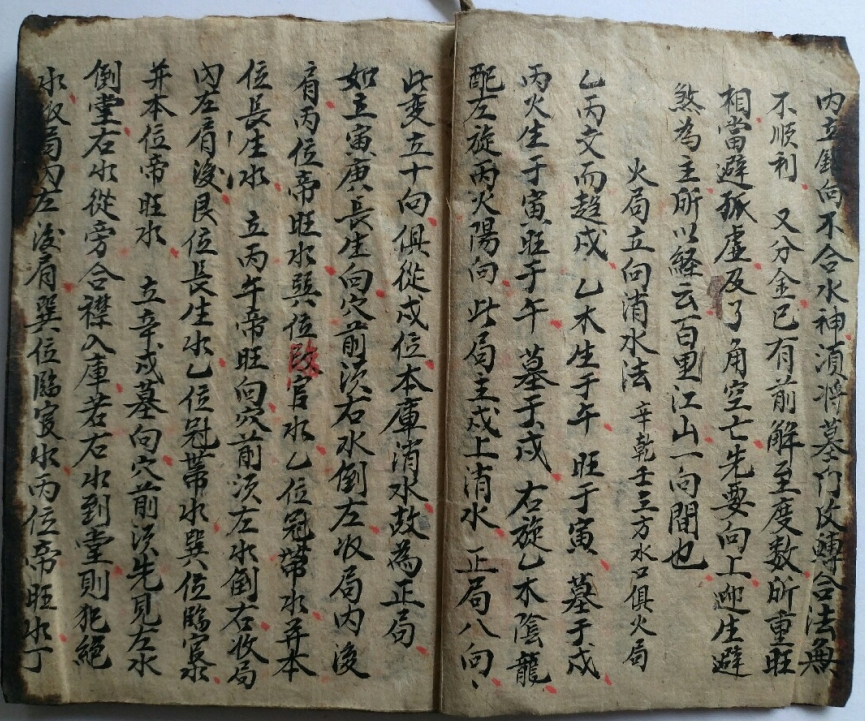 内立針向不合水神須将墓门改轉合法無
不順利 又分金已有前解至度数所重旺
相當避孤虚及了角空亡先要向上迎生避
煞為主所以経云百里江山一向間也
火局立向消水法 辛乾壬三方水口俱火局
乙丙交而趋戍 乙木生于午 旺于寅 墓于戍
丙火生于寅旺于午 墓于戍 右旋乙木陰龍
配左旋丙火陽向 此局主戍上消水 正局八向
此变立十向俱從戍位本庫消水故為正局
如立寅庚長生向穴前須右水倒左收局内後
肩丙位帝旺水巽位臨官水乙位冠帶水并本
位長生水 立丙午帝旺向穴前須左水倒右收局
内左肩後艮位長生水乙位冠帶水巽位臨官水
并本位帝旺水 立辛戍墓向穴前須先見左水
倒堂右水從旁合襟入庫若右水到堂則犯絕
水收局内左後肩巽位臨官水丙位帝旺水丁